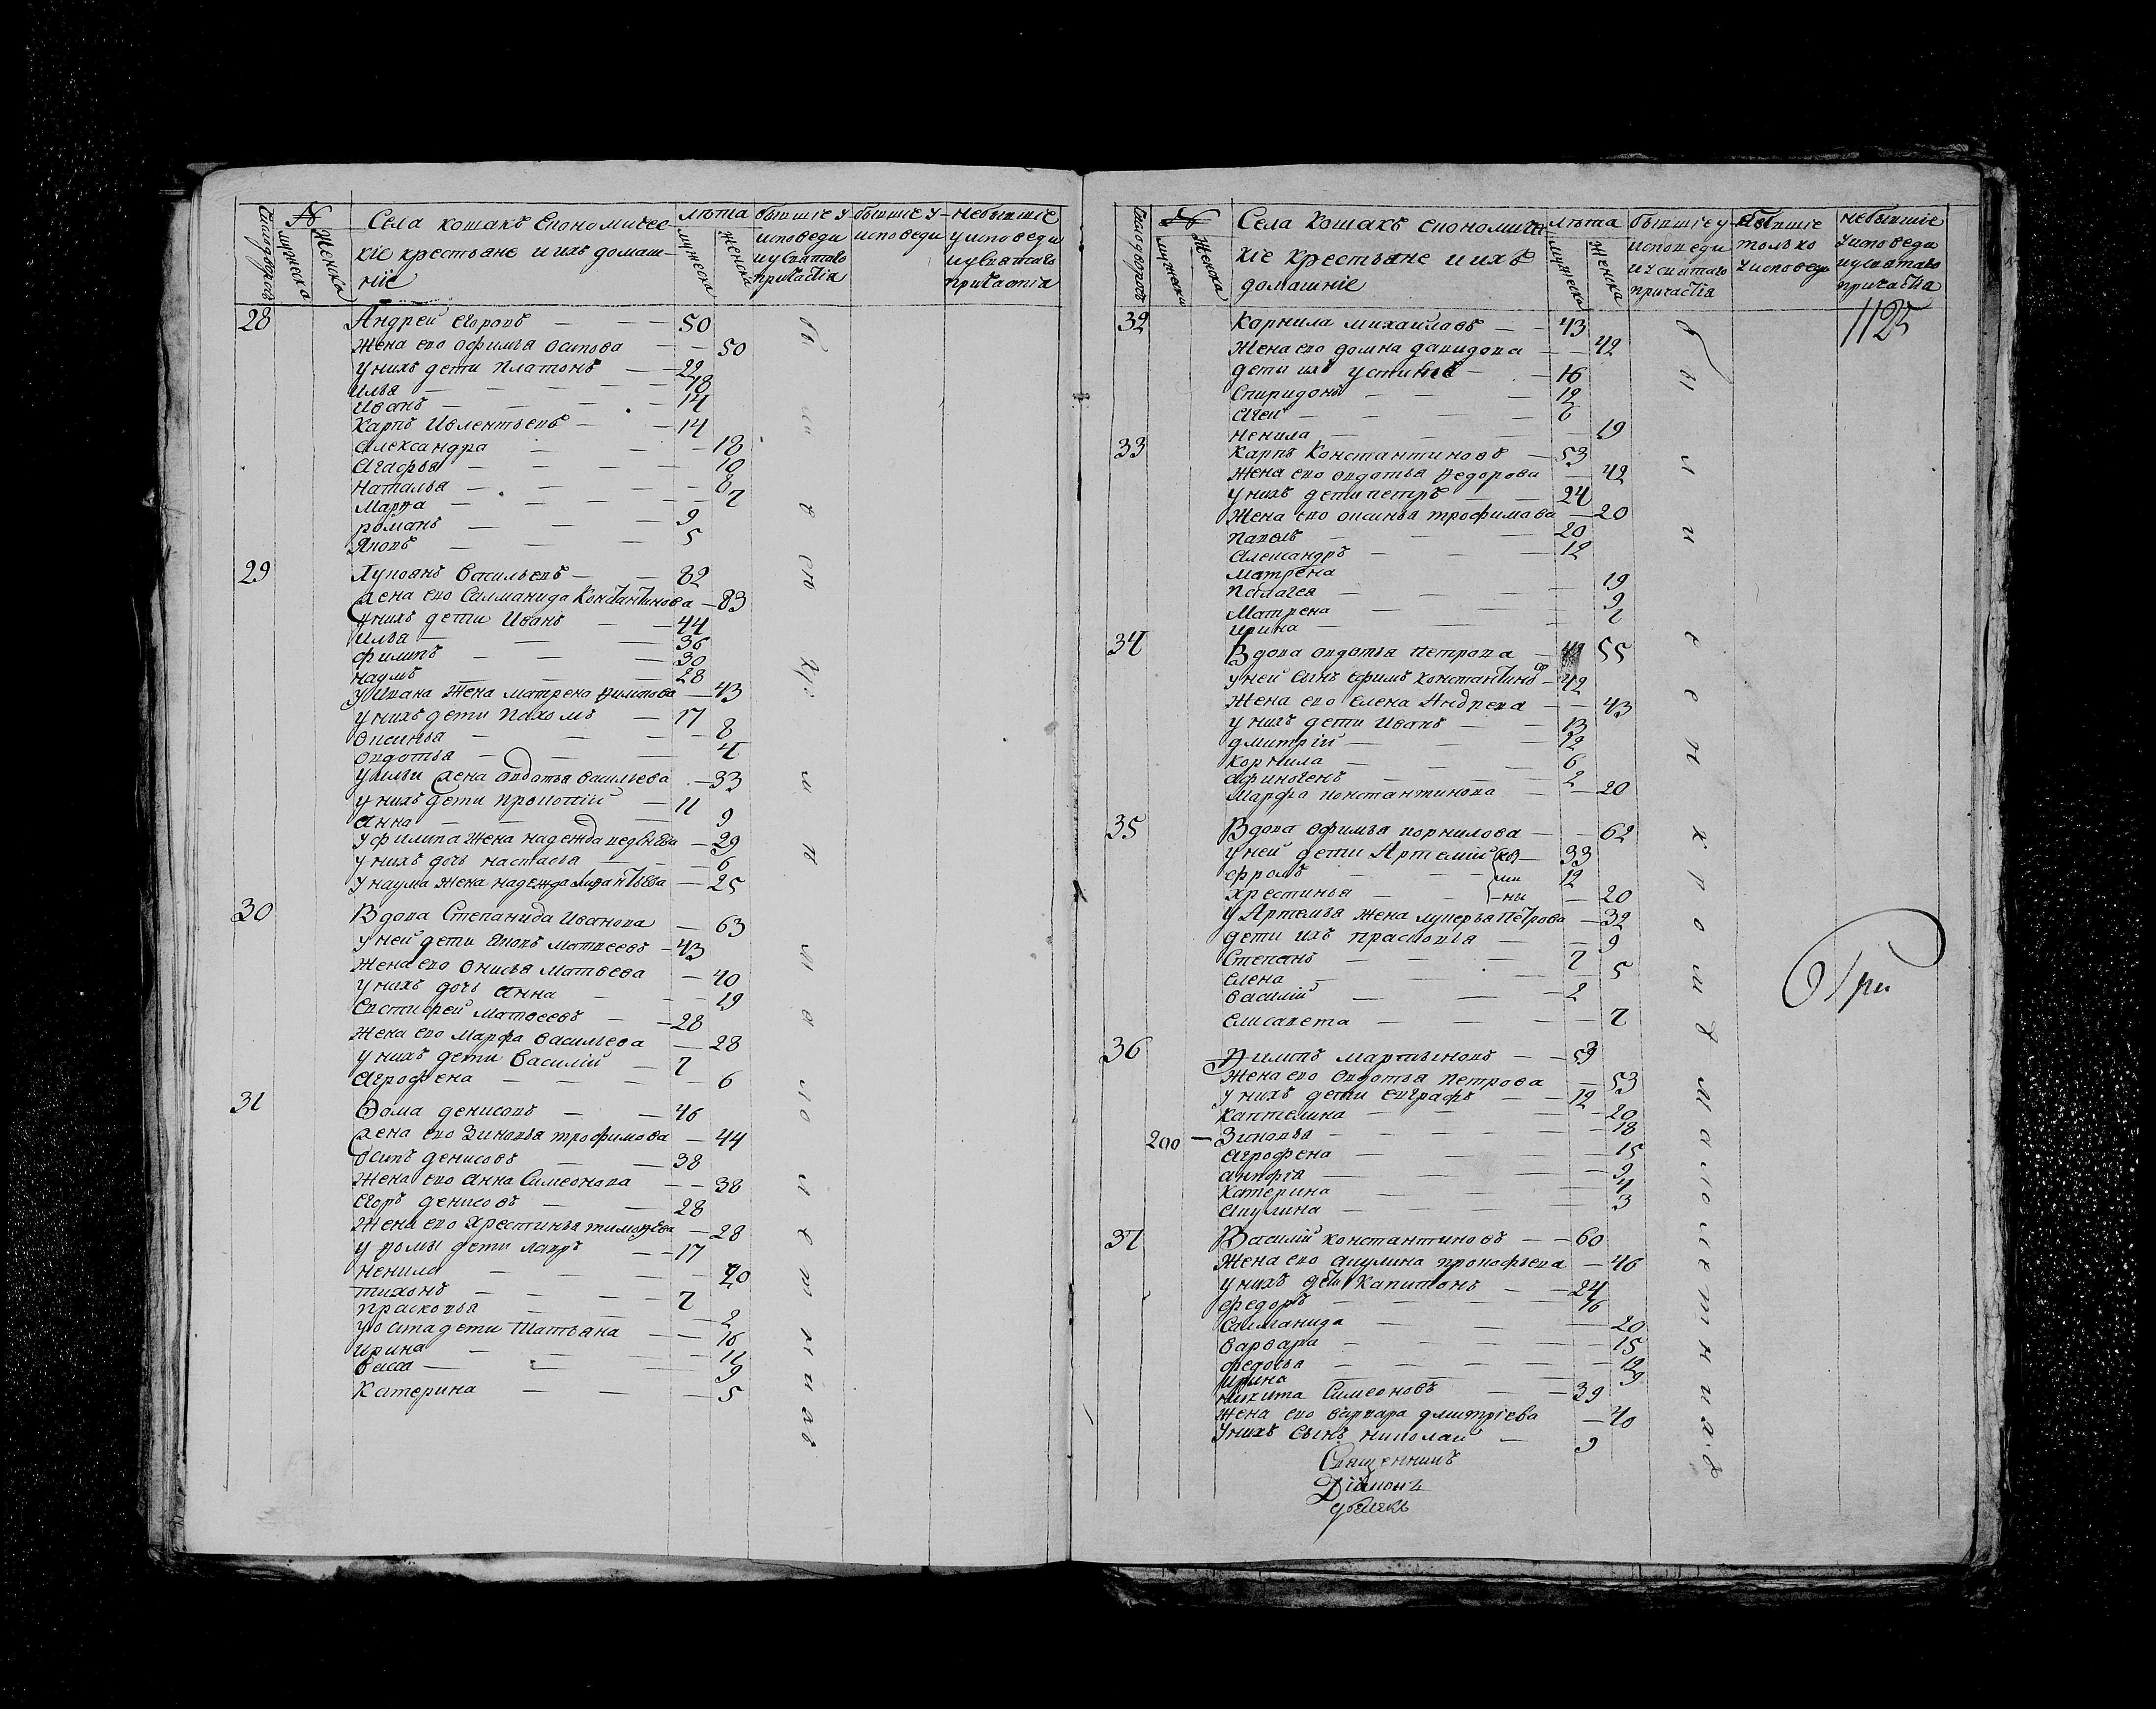 Число дворовъ
№
мужеска
Женска
Села кошакъ Економичес
кіе крестьяне и ихъ домаш-
ніе
лѣта
мужеска
женска
бывшіе у
исповеди
и у святаго
причастія
бывшіе у
исповеди
небывшіе
у исповеди
и у святаго
причастія
28
Андрей егоровъ — 50
жена ево офимья осипова — 50
у нихъ дети платонъ — 22
илья — 18
Иванъ — 14
Карпъ — 14
Александра — 18
Агафья — 10
Наталья — 8
Марѳа — 7
романъ — 9
Яковъ — 5
29
Лукоянъ Васильевъ — 82
жена ево Саламанида Константинова — 83
у нихъ дети Иванъ — 44
Илья — 36
филипъ — 30
наумъ — 28
у Ивана жена матрена ѳилипова — 43
у нихъ дети пахомъ — 17
Оксинья — 8
овдотья — 4
у ильи жена овдотья васильева — 33
у нихъ дети прокопій — 11
Анна — 9
у филипа жена надежда — 29
у нихъ дочь настасья — 6
у наума жена надежда — 25
30
Вдова Степанида Иванова — 63
у ней дети Яковъ Матвеевъ — 43
жена ево Матвеева — 40
у нихъ дочь Анна — 19
Евстифей Матвеевъ — 28
жена ево марфа васильева — 28
у нихъ дети василій — 7
Агрофена — 6
31
Ѳома денисовъ — 46
жена ево Зиновья трофимова — 44
Осипъ денисовъ — 38
жена ево анна Симеонова — 38
Егоръ денисовъ — 28
жена ево хрестинья тимоѳеева — 28
у ѳомы дети лавръ — 17
ненила — 20
тихонъ — 7
прасковья — 2
у осипа дети Татьяна — 16
ирина — 11
васса — 9
Катерина — 5
Число дворовъ
№
мужеска
Женска
Села Кошакъ економиче
кіе крестьяне и ихъ
домашніе
лѣта
мужеска
женска
бывшіе у
исповеди
и у святаго
причастія
бывшіе
только
у исповеди
небывшіе
у исповеди
и у святаго
причастія
1125
32
Корнила михаиловъ — 43
жена ево домна давидова — 42
дети ихъ устинъ — 16
Спиридонъ — 12
Агей — 6
ненила — 19
33
Карпъ Константиновъ — 53
жена ево овдотья ѳедорова — 42
у нихъ дети петръ — 24
жена ево оксинья трофимова — 20
павелъ — 20
Александръ — 12
матрена — 19
пелагея — 9
Матрена — 2
ирина —
34
Вдова овдотья петрова — 55
у ней сынъ ефимъ константиновъ — 42
жена ево елена Андрева — 43
у нихъ дети иванъ — 13
дмитрій — 12
корнила — 6
афиногенъ — 2
Марфа константинова — 20
35
Вдова офимья корнилова — 62
у ней дети Артемій — 33
фролъ — 12
хрестинья — 20
у Артемья жена лукерья петрова — 32
дети ихъ прасковья — 9
Степанъ — 7
Елена — 5
василій — 2
елисавета — 7
36
Ѳилипъ мартыновъ — 53
жена ево овдотья петрова — 53
у нихъ дети евграфъ — 12
каптелина — 20
200 — Зиновья — 18
Агрофена — 15
анфія — 9
катерина — 4
Акулина — 3
37
Василій константиновъ — 60
жена ево акулина прокофьева — 46
у нихъ дети капитонъ — 24
федоръ — 16
Саламанида — 20
варвара — 15
федосья — 12
ирина — 9
никита Симеоновъ — 39
жена ево варвара дмитріева — 40
у нихъ Сынъ николай — 9
Священникъ
Діаконъ
бы и л и е е н х р о м ѣ малолетнихъ
При